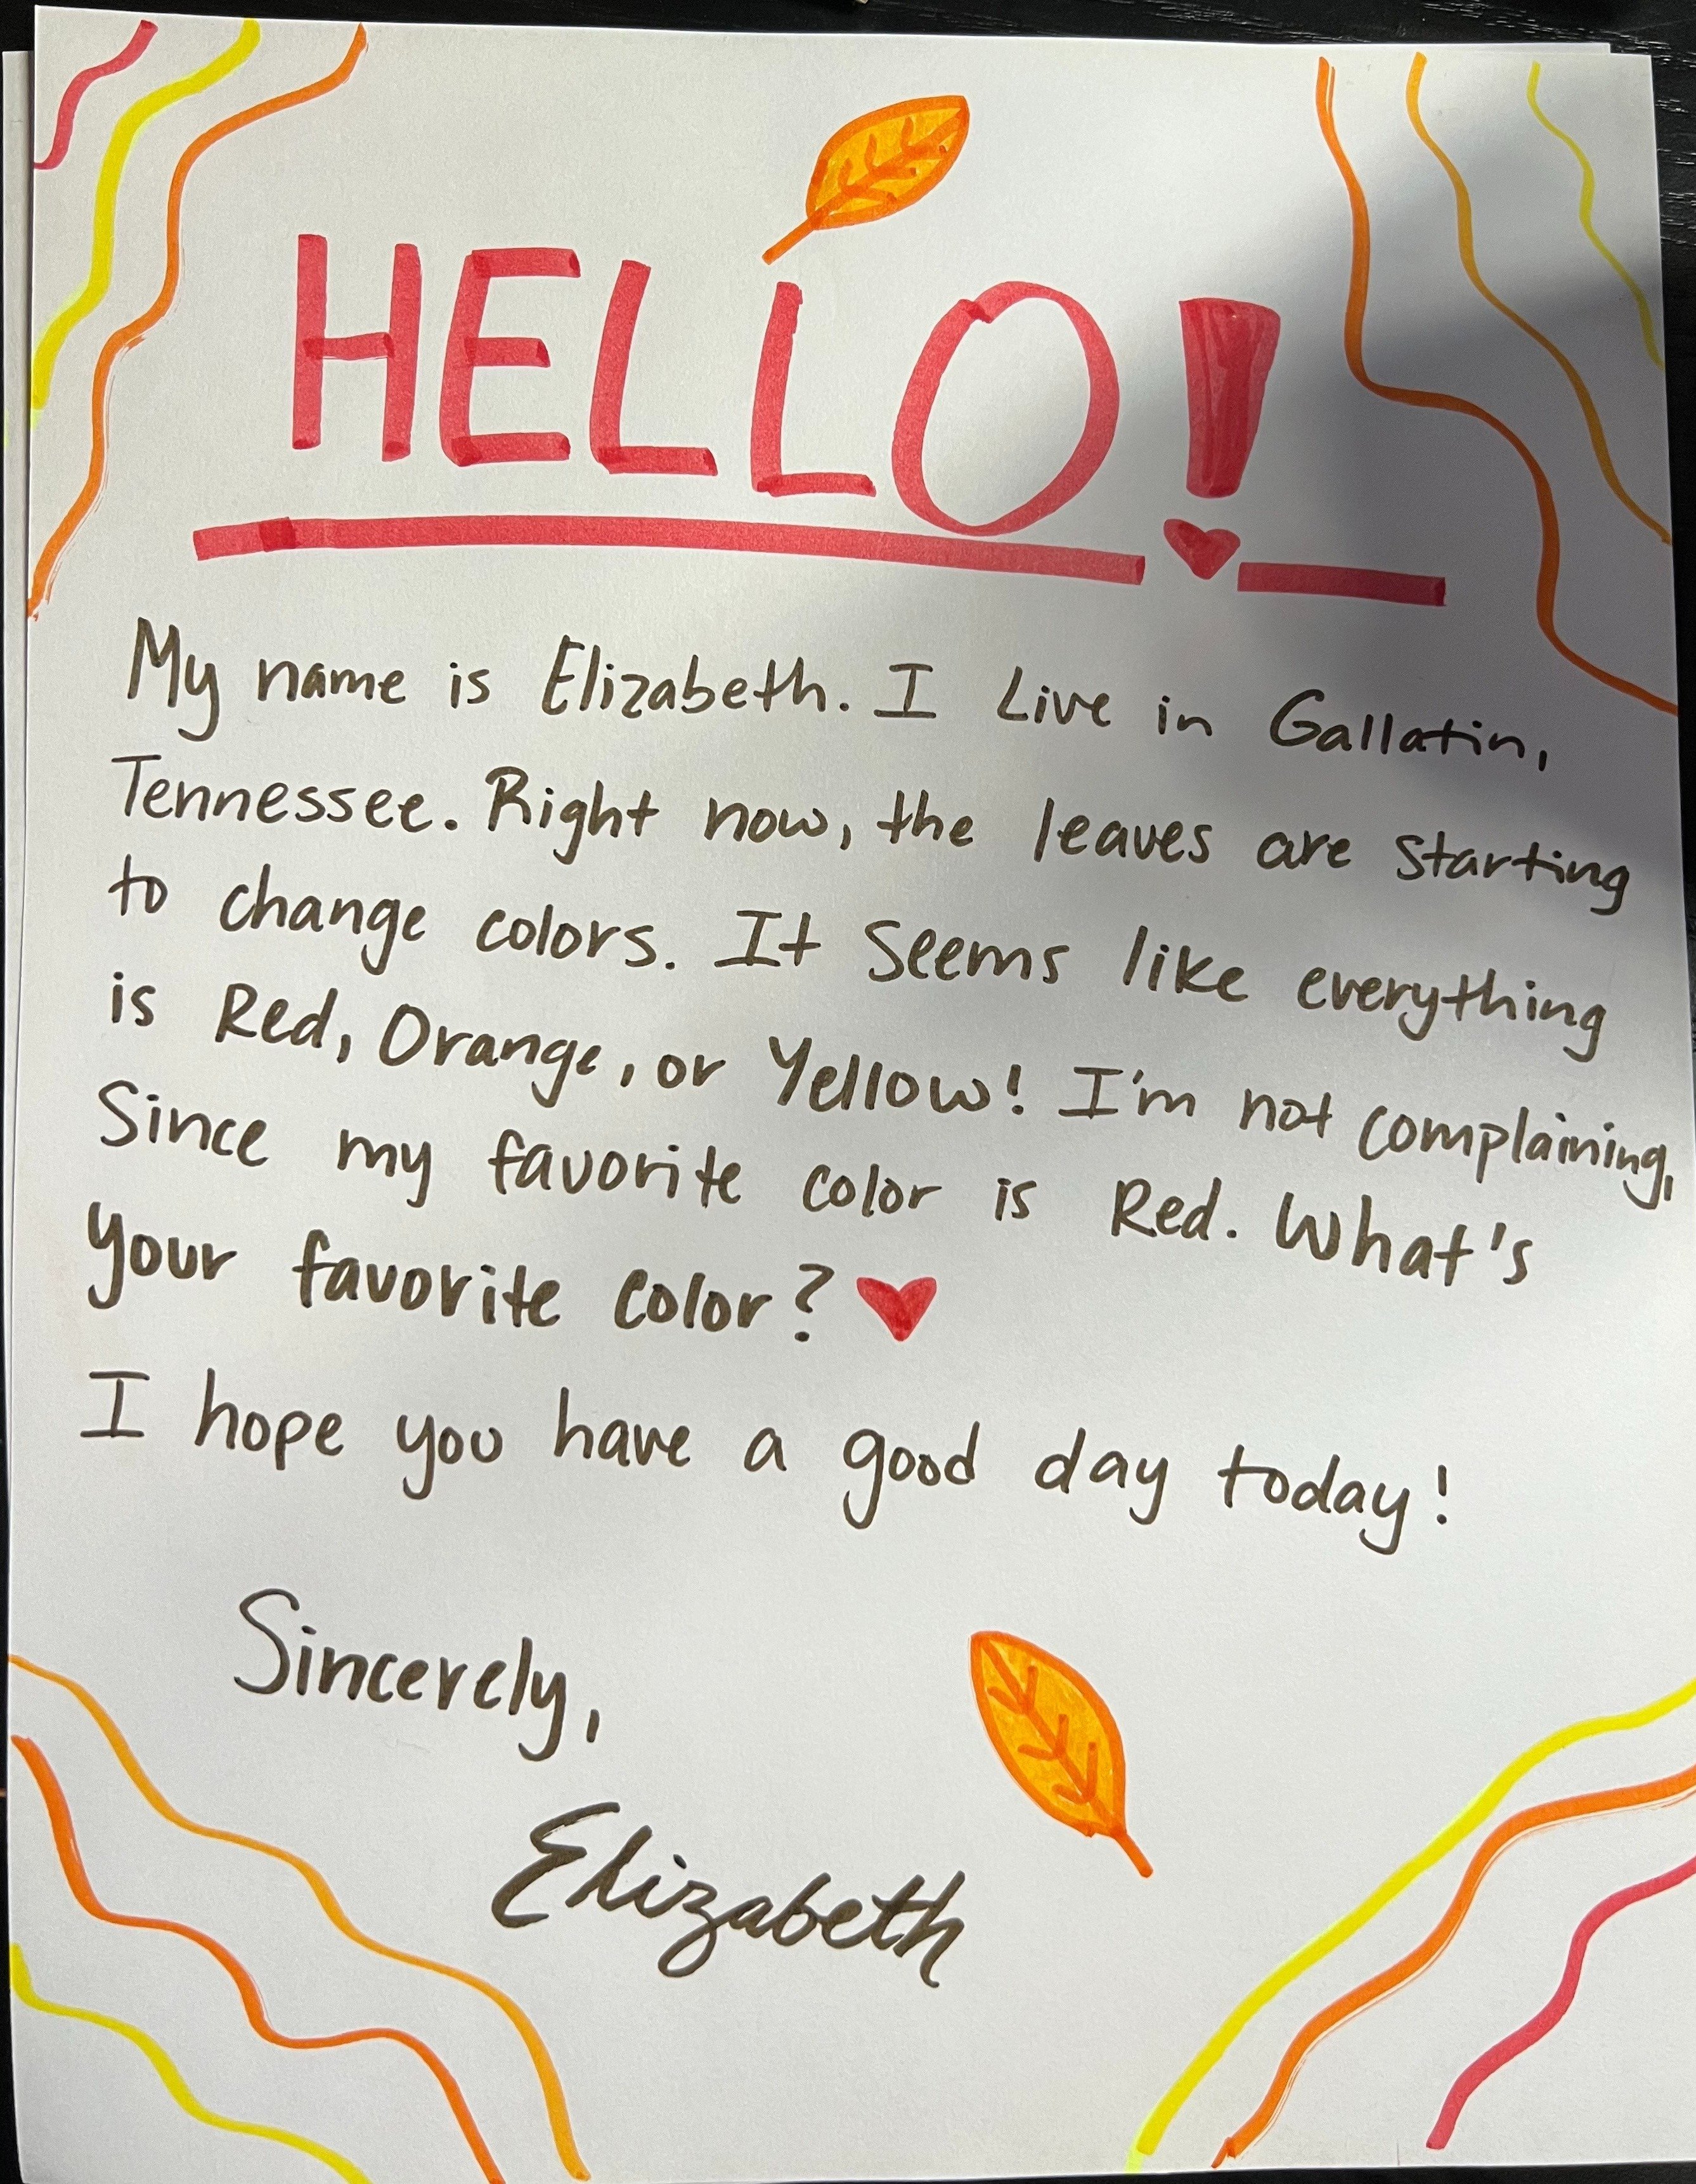 HELLO!
My name is Elizabeth. I Live in Gallatin,
Tennessee. Right now, the leaves are starting
to change colors. It seems like everything
is Red, Orange, or Yellow! I'm not complaining,
Since my favorite color is Red. What's
your favorite color? ♥
I hope you have a good day today!
Sincerely,
Elizabeth